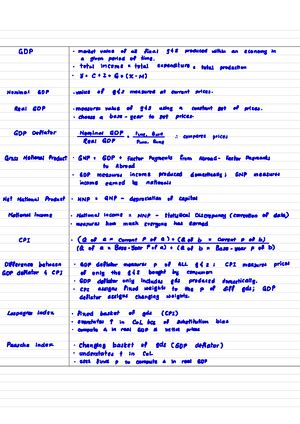 GDP
· market value of all final g&s produced within an economy in
a given period of time.
· total income = total expenditure = total production
· Y = C + I + G + (X - M)
Nominal GDP
· value of g&s measured at current prices.
Real GDP
· measures value of g&s using a constant set of prices.
· choose a base-year to set prices
GDP Deflator
Nominal GDP
Real GDP
∴ compares prices
Gross National Product
· GNP = GDP + Factor Payments from Abroad - Factor Payments
to Abroad
· GDP measures income produced domestically; GNP measures
income earned by nationals
Net National Product
· NNP = GNP - depreciation of capital
National Income
· National Income = NNP - Statistical Discrepancy (correction of data)
· measures how much everyone has earned
CPI
(Q of a × Current P of a) + (Q of b × Current P of b)
(Q of a × Base-Year P of a) + (Q of b × Base-year P of b)
Difference between
GDP deflator & CPI
· GDP deflator measures P of ALL g&s ; CPI measures prices
of only the g&s bought by consumers
· GDP deflator only includes g&s produced domestically.
· CPI assigns fixed weights to the P of diff g&s; GDP
deflator assigns changing weights.
Laspeyres Index
· fixed basket of g&s (CPI)
· overstates ↑ in CoL bcs of substitution bias
· compute Δ in real GDP @ initial prices
Paasche Index
· changing basket of g&s (GDP deflator)
· understates ↑ in CoL
· uses final P to compute Δ in real GDP